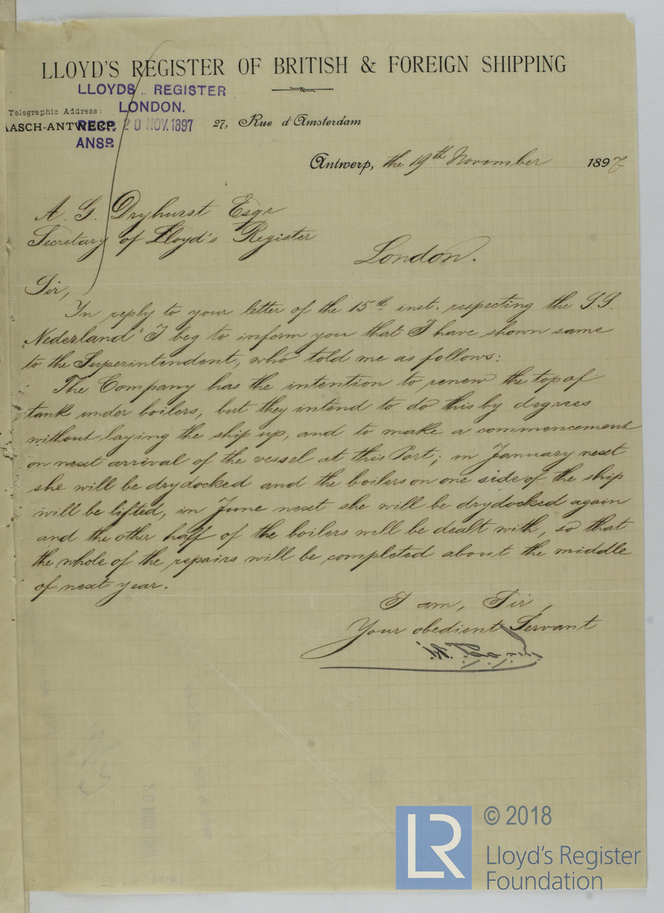 LLOYD'S REGISTER OF BRITISH & FOREIGN SHIPPING
LLOYDS REGISTER
LONDON.
RECP. 20 NOV. 1897
ANSP.
Telegraphic Address:
AASCH-ANTWERP.
27, Rue d'Amsterdam
Antwerp, the 19th November 1897
A. G. Dryhurst Esqr
Secretary of Lloyd's Register
London.
Sir,
In reply to your letter of the 15th inst. respecting the SS.
"Nederland" I beg to inform you that I have shown same
to the Superintendent, who told me as follows:
The Company has the intention to renew the top of
tank under boilers, but they intend to do this by degrees
without laying the ship up, and to make a commencement
on next arrival of the vessel at this Port; in January next
she will be drydocked and the boilers on one side of the ship
will be lifted, in June next she will be drydocked again
and the other half of the boilers will be dealt with, so that
the whole of the repairs will be completed about the middle
of next year.
I am, Sir,
Your obedient Servant
LR
© 2018
Lloyd's Register
Foundation